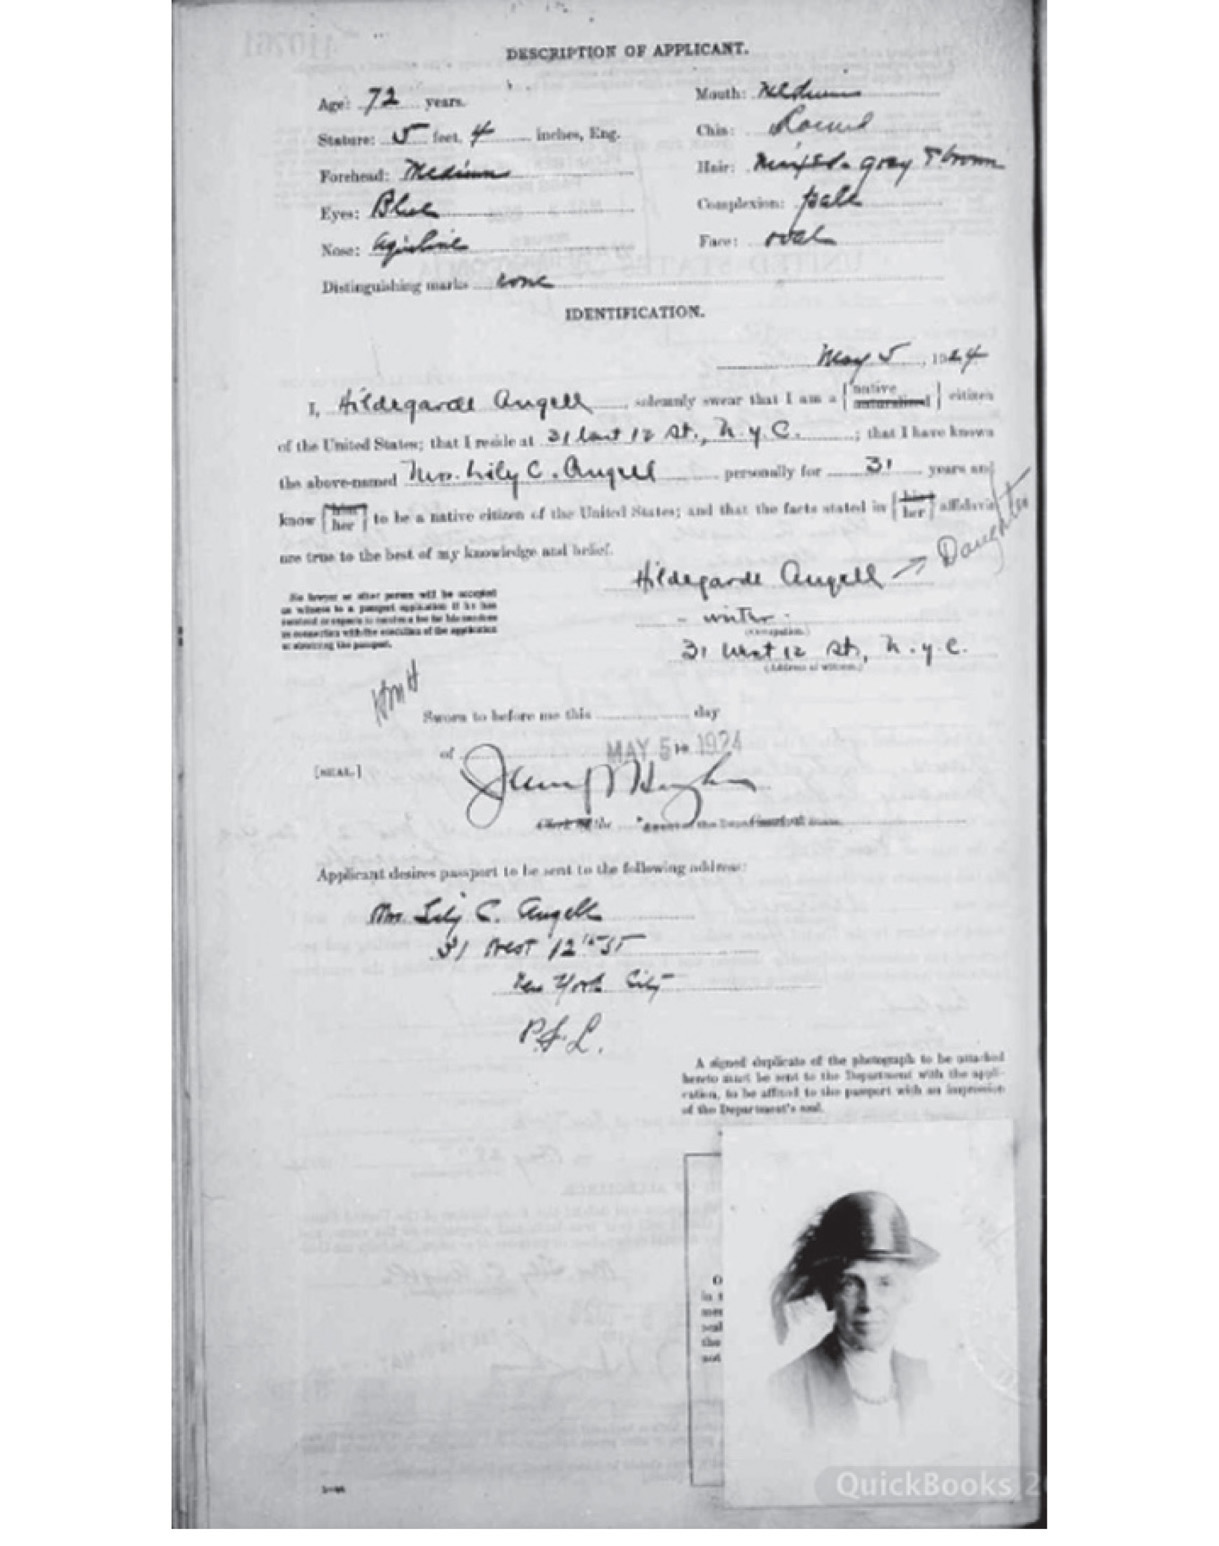 DESCRIPTION OF APPLICANT.
Age: 72 years.
Mouth: Medium
Stature: 5 feet, 4 inches, Eng.
Chin: Round
Forehead: Medium
Hair: Mixed - gray & brown
Eyes: Blue
Complexion: pale
Nose: aquiline
Face: oval
Distinguishing marks none
IDENTIFICATION.
May 5, 1924
I, Hildegarde Angell, solemnly swear that I am a {native naturalized} citizen
of the United States; that I reside at 31 West 12 St., N.Y.C.; that I have known
the above-named Mrs. Lily C. Angell personally for 31 years and
know {him her} to be a native citizen of the United States; and that the facts stated in {his her} affidavit
are true to the best of my knowledge and belief.
Hildegarde Angell → Daughter
No lawyer or other person will be accepted
as witness to a passport application if he has
received or expects to receive a fee for his services
in connection with the execution of the application
or obtaining the passport.
- writer -
(Occupation.)
31 West 12 St, N.Y.C.
(Address of witness.)
Sworn to before me this day
of MAY 5 1924
[SEAL.]
Applicant desires passport to be sent to the following address:
Mrs Lily C. Angell
31 West 12th St
New York City
A signed duplicate of the photograph to be attached
hereto must be sent to the Department with the appli-
cation, to be affixed to the passport with an impression
of the Department's seal.
QuickBooks 2